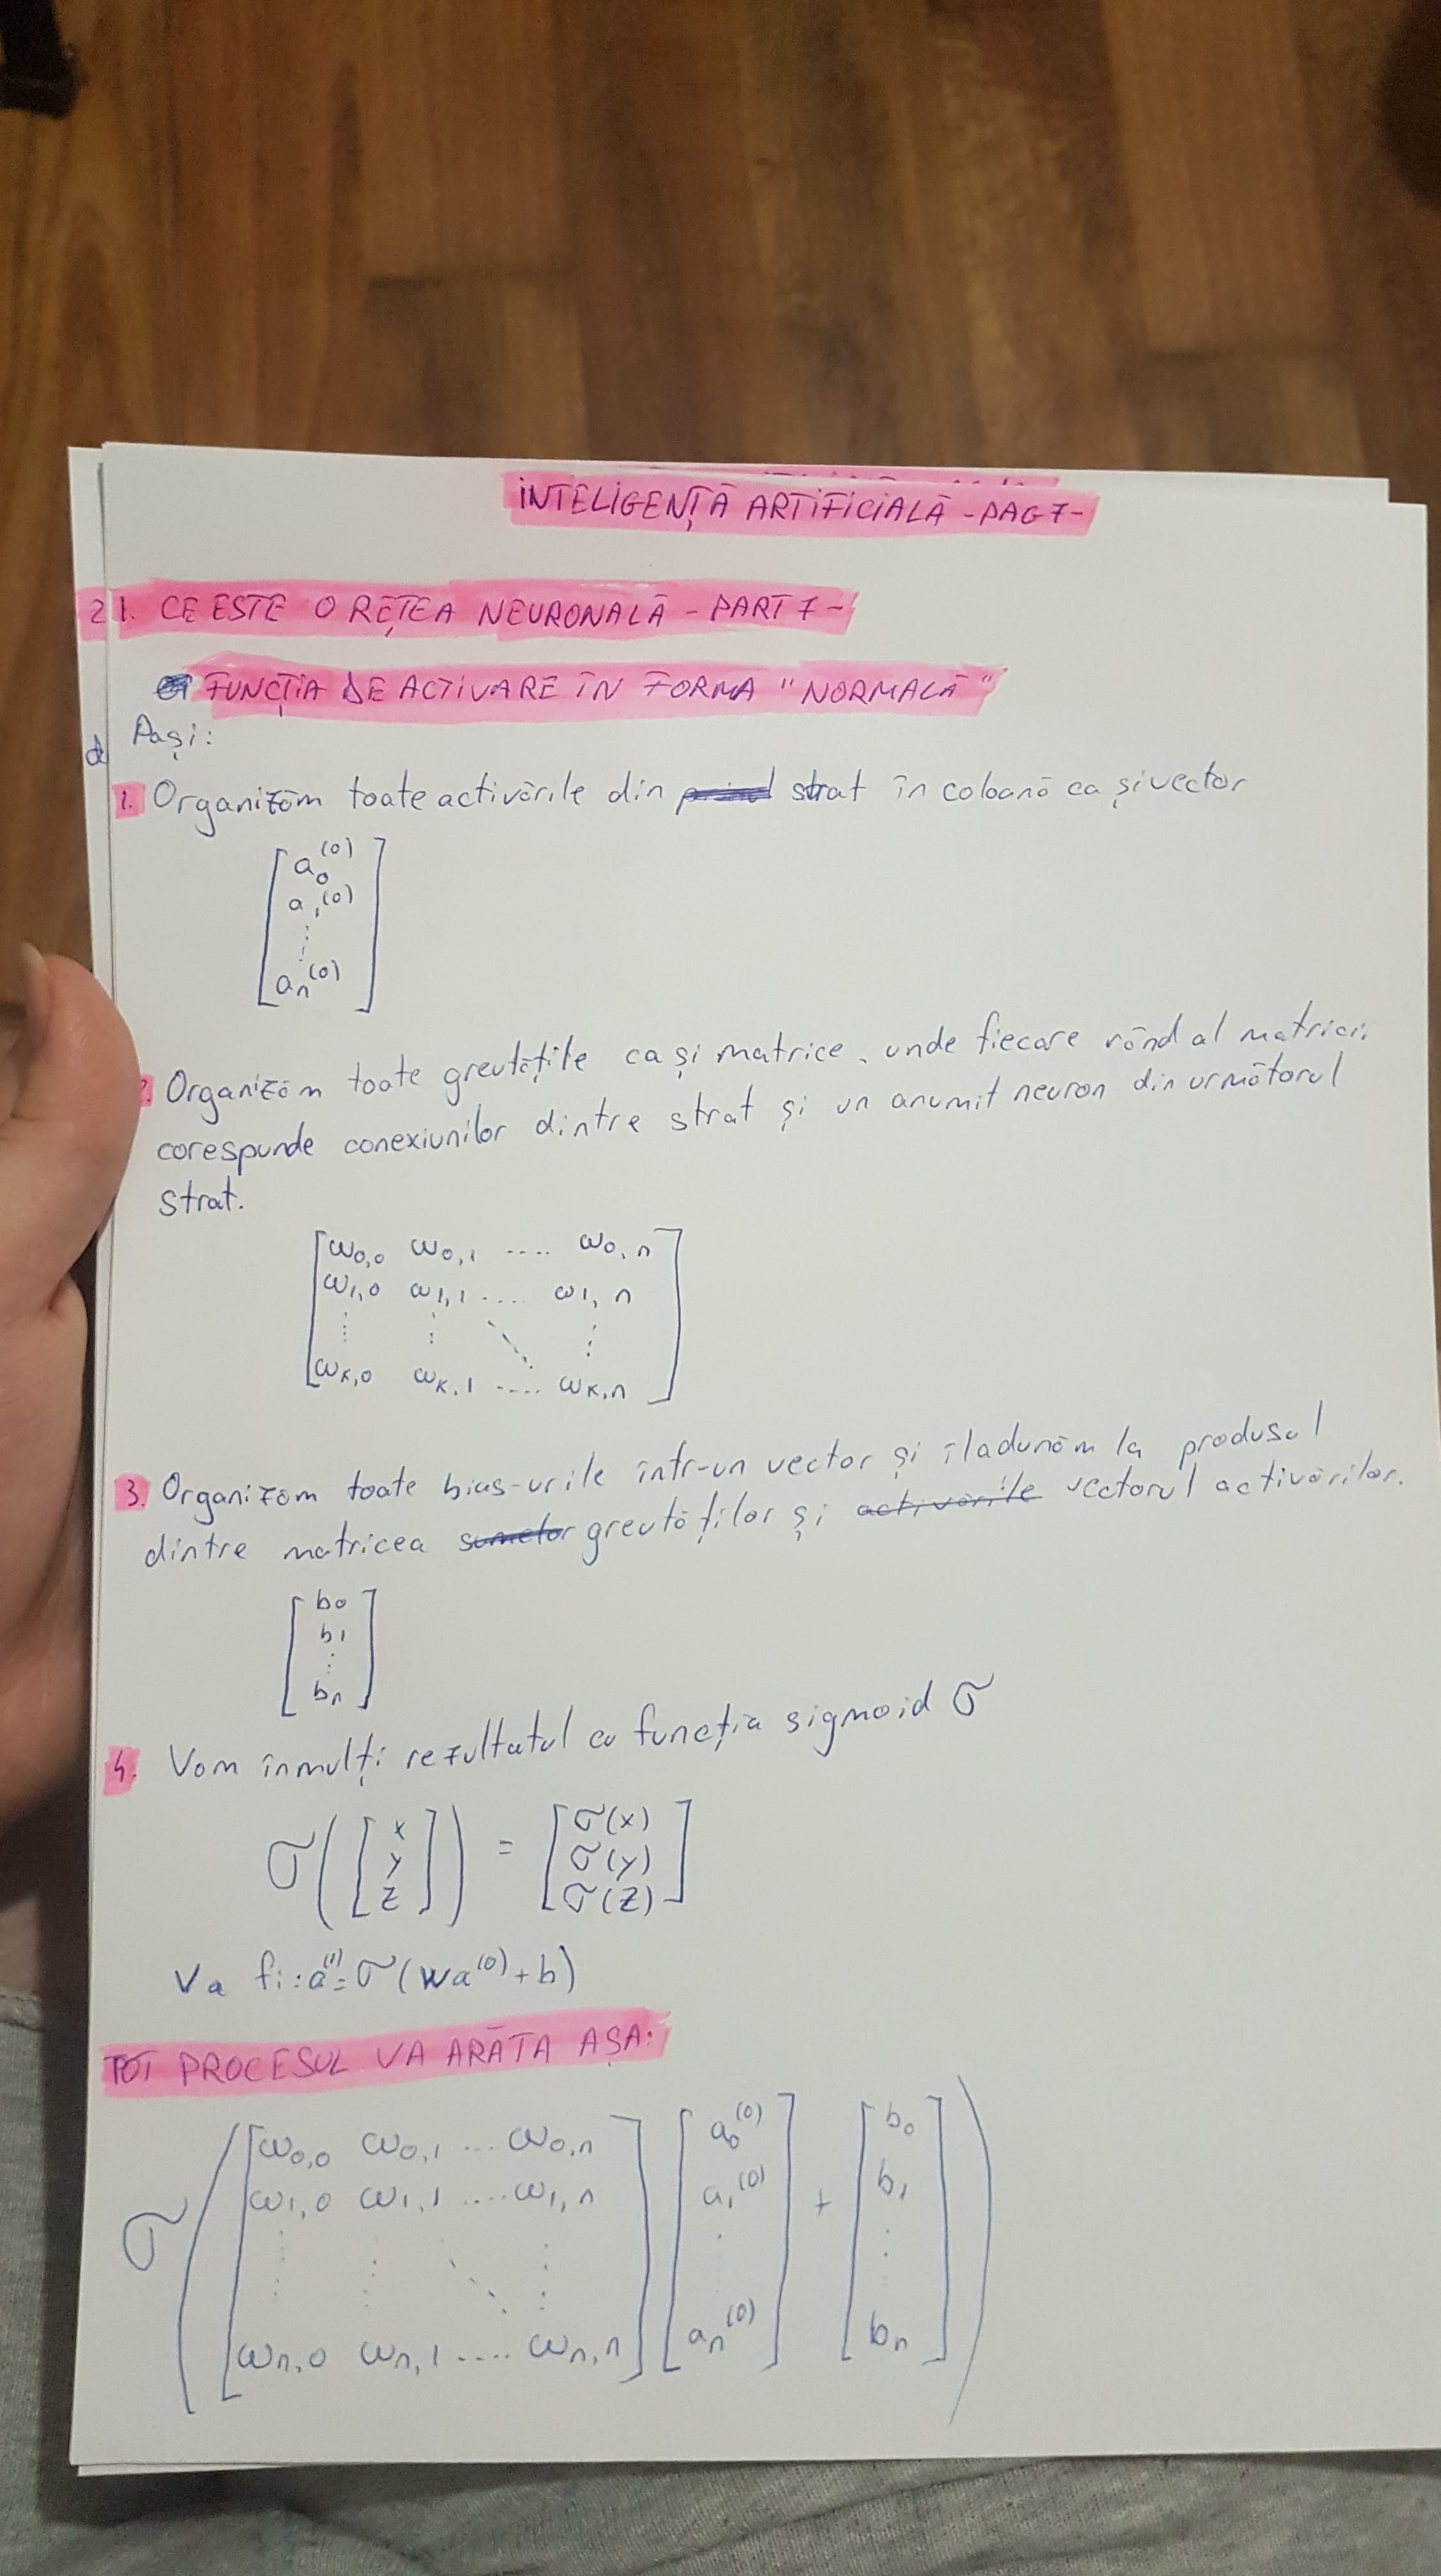 INTELIGENȚĂ ARTIFICIALĂ -PAG 7-
1. CE ESTE O REȚEA NEURONALĂ - PART 7 -
FUNCȚIA DE ACTIVARE ÎN FORMA "NORMALĂ"
Pași:
1. Organizăm toate activările din strat în coloană ca și vector
[a₀⁽⁰⁾]
[a₁⁽⁰⁾]
[⋮]
[aₙ⁽⁰⁾]
2. Organizăm toate greutățile ca și matrice, unde fiecare rând al matricii
corespunde conexiunilor dintre strat și un anumit neuron din următorul
strat.
[ω0,0 ω0,1 .... ω0,n]
[ω1,0 ω1,1 .... ω1,n]
[⋮ ⋮ ⋱ ⋮]
[ωK,0 ωK,1 .... ωK,n]
3. Organizăm toate bias-urile într-un vector și îl adunăm la produsul
dintre matricea greutăților și activările vectorul activărilor.
[b0]
[b1]
[⋮]
[bn]
4. Vom înmulți rezultatul cu funcția sigmoid σ
σ([x y z]) = [σ(x) σ(y) σ(z)]
Va fi: a⁽¹⁾= σ(Wa⁽⁰⁾+b)
TOT PROCESUL VA ARĂTA AȘA:
σ([ω0,0 ω0,1 ... ω0,n] [a₀⁽⁰⁾] + [b0])
[ω1,0 ω1,1 .... ω1,n] [a₁⁽⁰⁾] [b1]
[⋮ ⋮ ⋱ ⋮] [⋮] [⋮]
[ωn,0 ωn,1 .... ωn,n] [aₙ⁽⁰⁾] [bn]